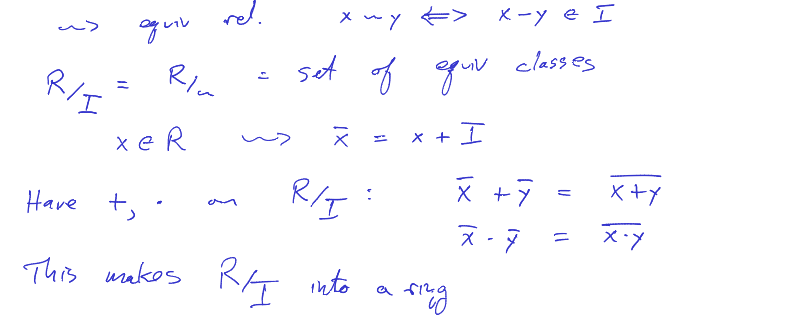 ⇝ equiv rel. x ~ y ⟺ x - y ∈ I
R/I = R/~ = set of equiv classes
x ∈ R ⇝ x̄ = x + I
Have +, · on R/I : x̄ + ȳ = \overline{x+y}
x̄ · ȳ = \overline{x·y}
This makes R/I into a ring